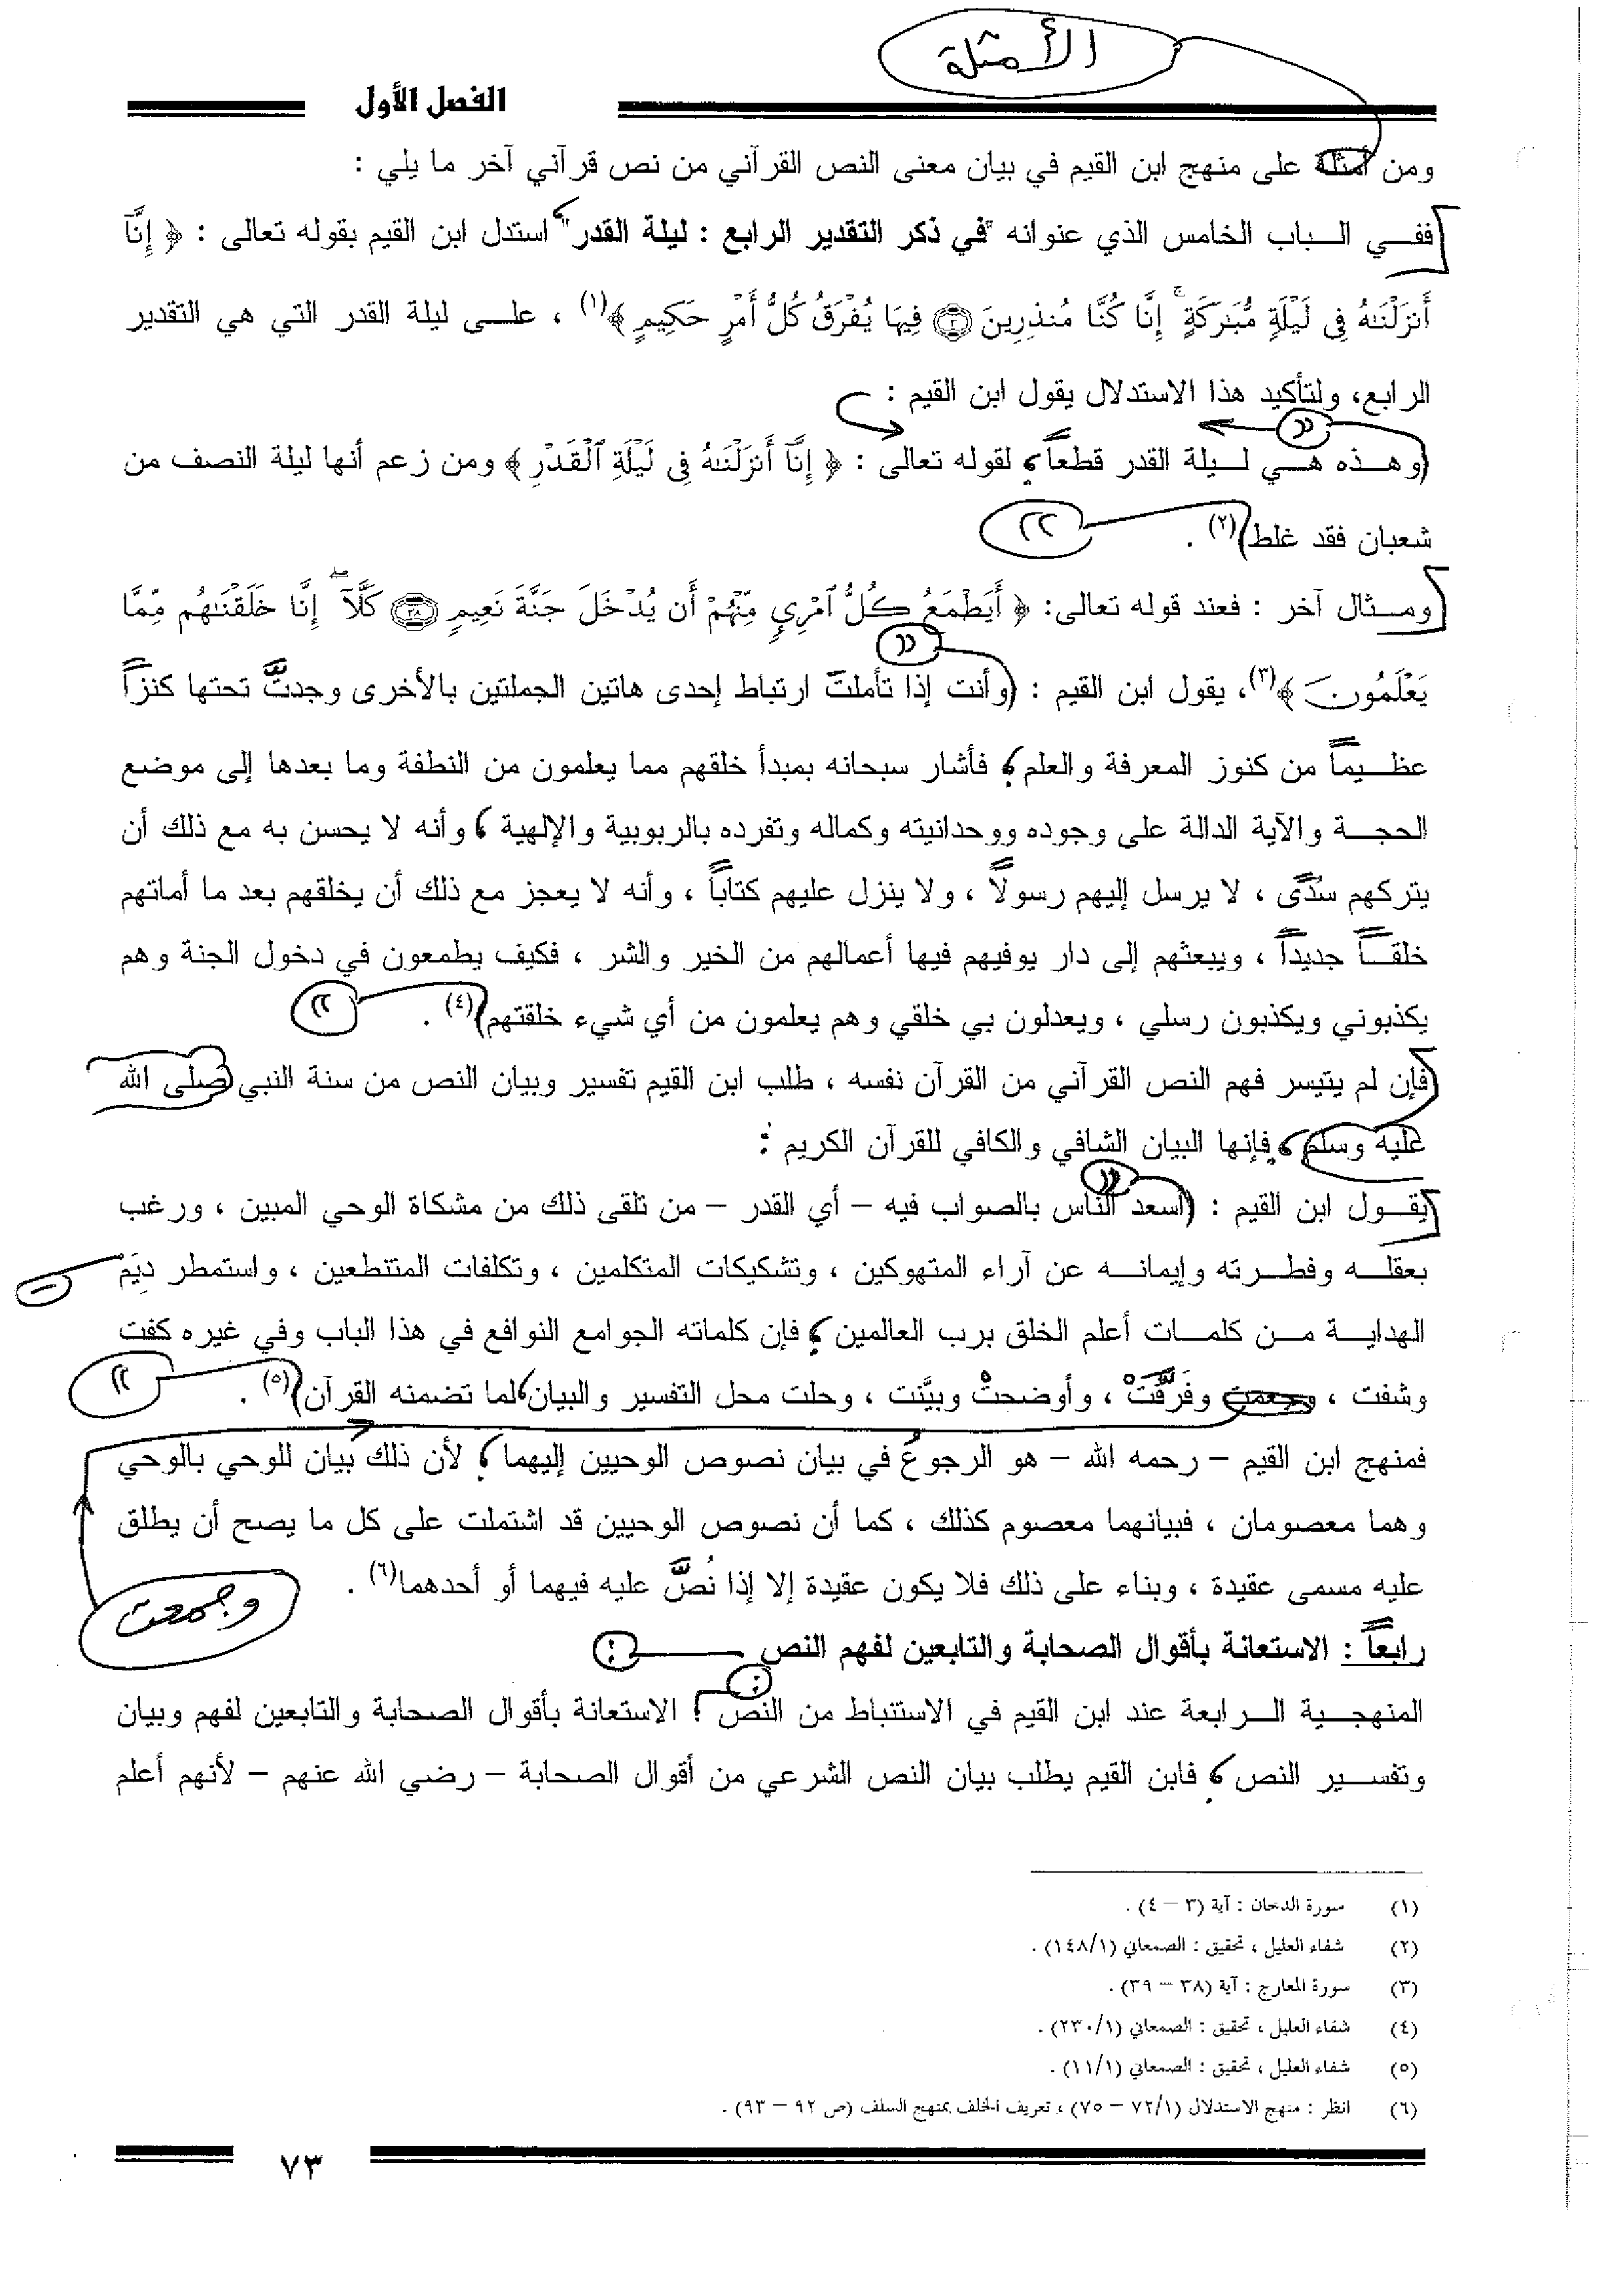 الأمثلة
الفصل الأول
ومن أمثلة على منهج ابن القيم في بيان معنى النص القرآني من نص قرآني آخر ما يلي :
ففي الباب الخامس الذي عنوانه "في ذكر التقدير الرابع : ليلة القدر" استدل ابن القيم بقوله تعالى : ﴿ إِنَّآ
أَنزَلْنَٰهُ فِى لَيْلَةٍ مُّبَٰرَكَةٍ ۚ إِنَّا كُنَّا مُنذِرِينَ ۝٣ فِيهَا يُفْرَقُ كُلُّ أَمْرٍ حَكِيمٍ ﴾(١) ، على ليلة القدر التي هي التقدير
الرابع، ولتأكيد هذا الاستدلال يقول ابن القيم :
(وهذه هي ليلة القدر قطعاً، لقوله تعالى : ﴿ إِنَّآ أَنزَلْنَٰهُ فِى لَيْلَةِ ٱلْقَدْرِ ﴾ ومن زعم أنها ليلة النصف من
شعبان فقد غلط)(٢) .
ومثال آخر : فعند قوله تعالى: ﴿ أَيَطْمَعُ كُلُّ ٱمْرِئٍ مِّنْهُمْ أَن يُدْخَلَ جَنَّةَ نَعِيمٍ ۝٣٨ كَلَّآ ۖ إِنَّا خَلَقْنَٰهُم مِّمَّا
يَعْلَمُونَ ﴾(٣)، يقول ابن القيم : (وأنت إذا تأملت ارتباط إحدى هاتين الجملتين بالأخرى وجدتَّ تحتها كنزاً
عظيماً من كنوز المعرفة والعلم؛ فأشار سبحانه بمبدأ خلقهم مما يعلمون من النطفة وما بعدها إلى موضع
الحجة والآية الدالة على وجوده ووحدانيته وكماله وتفرده بالربوبية والإلهية ، وأنه لا يحسن به مع ذلك أن
يتركهم سدًى ، لا يرسل إليهم رسولاً ، ولا ينزل عليهم كتاباً ، وأنه لا يعجز مع ذلك أن يخلقهم بعد ما أماتهم
خلقاً جديداً ، ويبعثهم إلى دار يوفيهم فيها أعمالهم من الخير والشر ، فكيف يطمعون في دخول الجنة وهم
يكذبوني ويكذبون رسلي ، ويعدلون بي خلقي وهم يعلمون من أي شيء خلقتهم)(٤) .
فإن لم يتيسر فهم النص القرآني من القرآن نفسه ، طلب ابن القيم تفسير وبيان النص من سنة النبي صلى الله
عليه وسلم؛ فإنها البيان الشافي والكافي للقرآن الكريم :
يقول ابن القيم : (أسعد الناس بالصواب فيه – أي القدر – من تلقى ذلك من مشكاة الوحي المبين ، ورغب
بعقله وفطرته وإيمانه عن آراء المتهوكين ، وتشكيكات المتكلمين ، وتكلفات المتنطعين ، واستمطر دِيَمَ
الهداية من كلمات أعلم الخلق برب العالمين؛ فإن كلماته الجوامع النوافع في هذا الباب وفي غيره كفت
وشفت ، وجعمت وفَرَّقَتْ ، وأوضحتْ وبيَّنت ، وحلت محل التفسير والبيان، لما تضمنه القرآن)(٥) .
فمنهج ابن القيم – رحمه الله – هو الرجوعُ في بيان نصوص الوحيين إليهما؛ لأن ذلك بيان للوحي بالوحي
وهما معصومان ، فبيانهما معصوم كذلك ، كما أن نصوص الوحيين قد اشتملت على كل ما يصح أن يطلق
عليه مسمى عقيدة ، وبناء على ذلك فلا يكون عقيدة إلا إذا نُصَّ عليه فيهما أو أحدهما(٦) .
وجمعت
رابعاً : الاستعانة بأقوال الصحابة والتابعين لفهم النص :
المنهجية الرابعة عند ابن القيم في الاستنباط من النص : الاستعانة بأقوال الصحابة والتابعين لفهم وبيان
وتفسير النص؛ فابن القيم يطلب بيان النص الشرعي من أقوال الصحابة – رضي الله عنهم – لأنهم أعلم
(١) سورة الدخان : آية (٣ – ٤) .
(٢) شفاء العليل ، تحقيق : الصمعاني (١٤٨/١) .
(٣) سورة المعارج : آية (٣٨ – ٣٩) .
(٤) شفاء العليل ، تحقيق : الصمعاني (٢٣٠/١) .
(٥) شفاء العليل ، تحقيق : الصمعاني (١١/١) .
(٦) انظر : منهج الاستدلال (٧٢/١ – ٧٥) ، تعريف الخلف بمنهج السلف (ص ٩٢ – ٩٣) .
٧٣